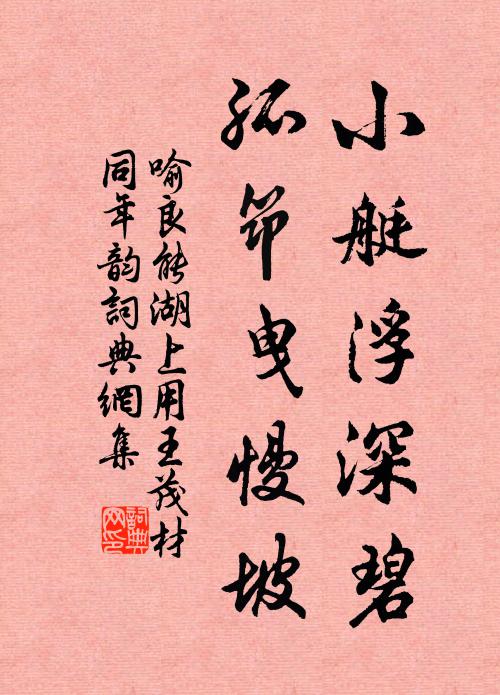 小艇浮深碧
孤笻曳慢坡
喻良能湖上用王茂材
同年韵詞典網集
詞典
網印